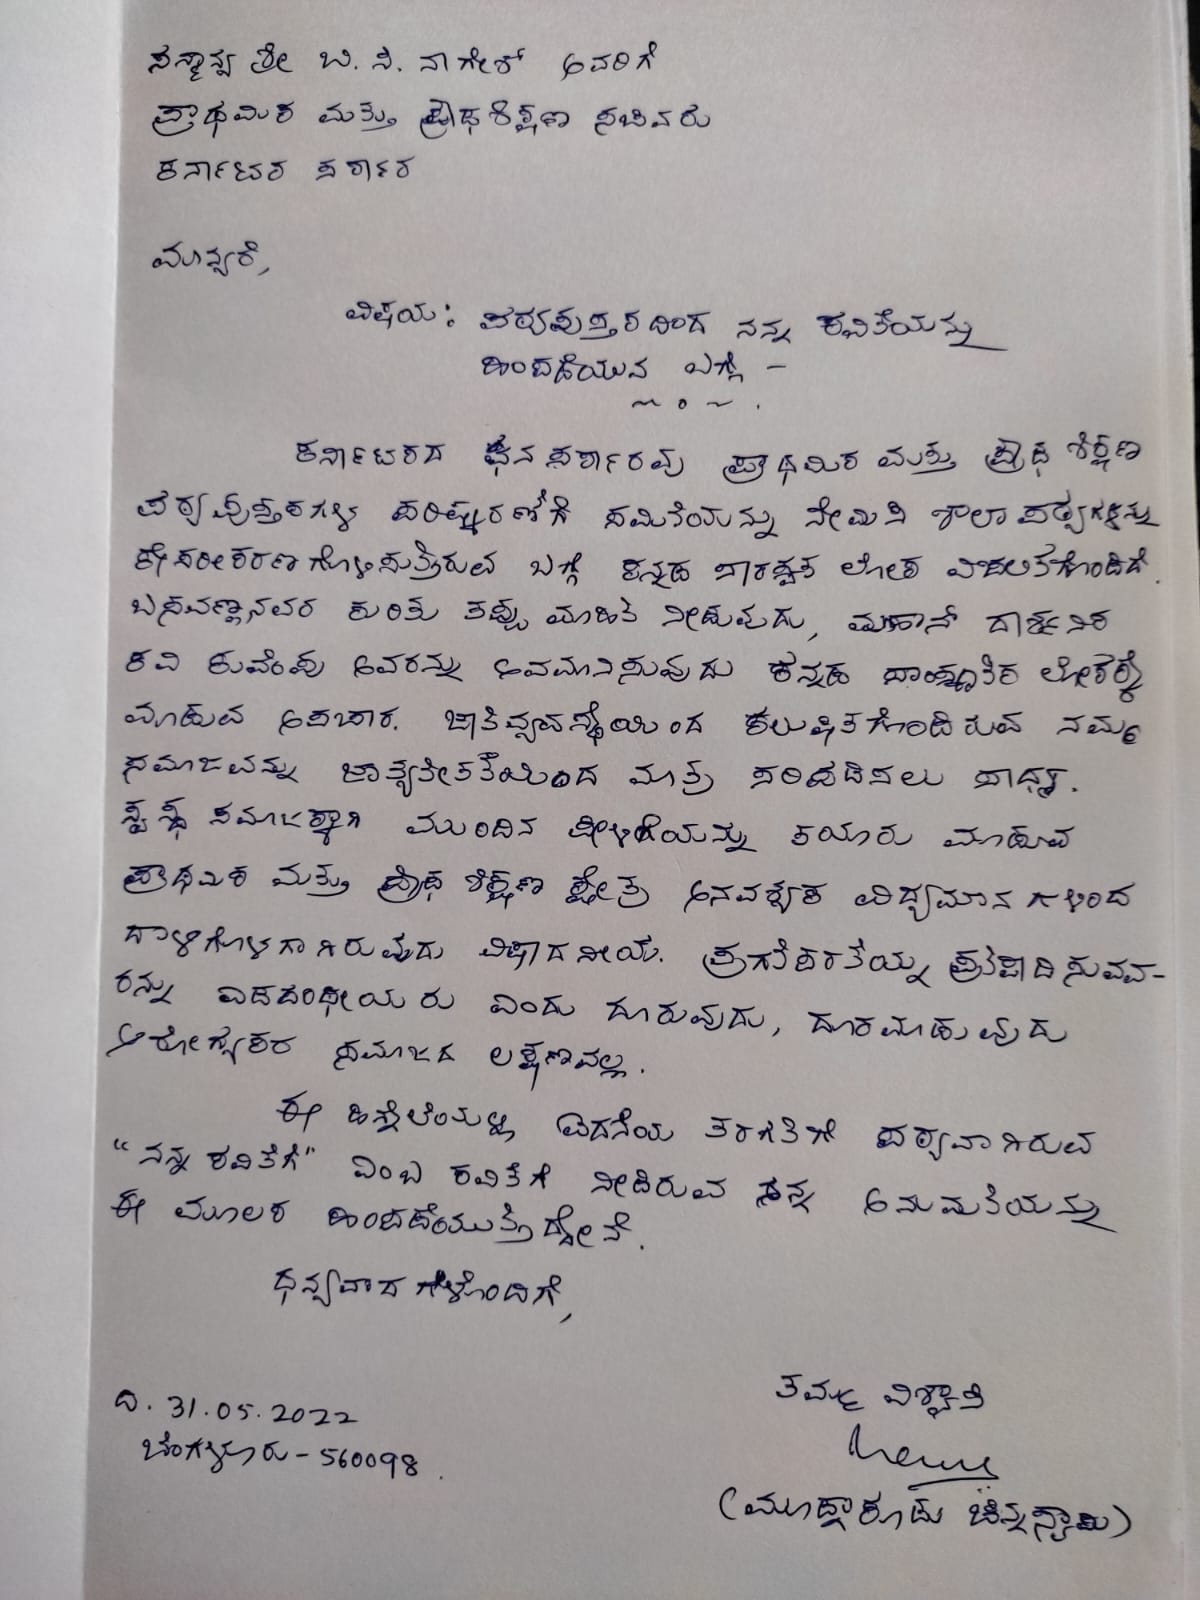 ಸನ್ಮಾನ್ಯ ಶ್ರೀ ಬಿ. ಸಿ. ನಾಗೇಶ್ ಅವರಿಗೆ
ಪ್ರಾಥಮಿಕ ಮತ್ತು ಪ್ರೌಢಶಿಕ್ಷಣ ಸಚಿವರು
ಕರ್ನಾಟಕ ಸರ್ಕಾರ
ಮಾನ್ಯರೆ,
ವಿಷಯ: ಪಠ್ಯಪುಸ್ತಕದಿಂದ ನನ್ನ ಕವಿತೆಯನ್ನು
ಹಿಂಪಡೆಯುವ ಬಗ್ಗೆ –
ಕರ್ನಾಟಕದ ಘನ ಸರ್ಕಾರವು ಪ್ರಾಥಮಿಕ ಮತ್ತು ಪ್ರೌಢ ಶಿಕ್ಷಣ
ಪಠ್ಯಪುಸ್ತಕಗಳ ಪರಿಷ್ಕರಣೆಗೆ ಸಮಿತಿಯನ್ನು ನೇಮಿಸಿ ಶಾಲಾ ಪಠ್ಯಗಳನ್ನು
ಕೇಸರೀಕರಣಗೊಳಿಸುತ್ತಿರುವ ಬಗ್ಗೆ ಕನ್ನಡ ಸಾರಸ್ವತ ಲೋಕ ವಿಚಲಿತಗೊಂಡಿದೆ.
ಬಸವಣ್ಣನವರ ಕುರಿತು ತಪ್ಪು ಮಾಹಿತಿ ನೀಡುವುದು, ಮಹಾನ್ ದಾರ್ಶನಿಕ
ಕವಿ ಕುವೆಂಪು ಅವರನ್ನು ಅವಮಾನಿಸುವುದು ಕನ್ನಡ ಸಾಂಸ್ಕೃತಿಕ ಲೋಕಕ್ಕೆ
ಮಾಡುವ ಅಪಚಾರ. ಜಾತಿವ್ಯವಸ್ಥೆಯಿಂದ ಕಲುಷಿತಗೊಂಡಿರುವ ನಮ್ಮ
ಸಮಾಜವನ್ನು ಜಾತ್ಯತೀತತೆಯಿಂದ ಮಾತ್ರ ಸರಿಪಡಿಸಲು ಸಾಧ್ಯ.
ಸ್ವಸ್ಥ ಸಮಾಜಕ್ಕಾಗಿ ಮುಂದಿನ ಪೀಳಿಗೆಯನ್ನು ತಯಾರು ಮಾಡುವ
ಪ್ರಾಥಮಿಕ ಮತ್ತು ಪ್ರೌಢ ಶಿಕ್ಷಣ ಕ್ಷೇತ್ರ ಅನವಶ್ಯಕ ವಿದ್ಯಮಾನಗಳಿಂದ
ದಾಳಿಗೊಳಗಾಗಿರುವುದು ವಿಷಾದನೀಯ. ಪ್ರಗತಿಪರತೆಯನ್ನ ಪ್ರತಿಪಾದಿಸುವವ-
ರನ್ನು ಎಡಪಂಥೀಯರು ಎಂದು ದೂರುವುದು, ದೂರಮಾಡುವುದು
ಆರೋಗ್ಯಕರ ಸಮಾಜದ ಲಕ್ಷಣವಲ್ಲ.
ಈ ಹಿನ್ನೆಲೆಯಲ್ಲಿ ಐದನೆಯ ತರಗತಿಗೆ ಪಠ್ಯವಾಗಿರುವ
"ನನ್ನ ಕವಿತೆಗೆ" ಎಂಬ ಕವಿತೆಗೆ ನೀಡಿರುವ ನನ್ನ ಅನುಮತಿಯನ್ನು
ಈ ಮೂಲಕ ಹಿಂಪಡೆಯುತ್ತಿದ್ದೇನೆ.
ಧನ್ಯವಾದಗಳೊಂದಿಗೆ,
ತಮ್ಮ ವಿಶ್ವಾಸಿ
ದಿ. 31.05.2022
ಬೆಂಗಳೂರು – 560098.
(ಮೂಡ್ನಾಕೂಡು ಚಿನ್ನಸ್ವಾಮಿ)